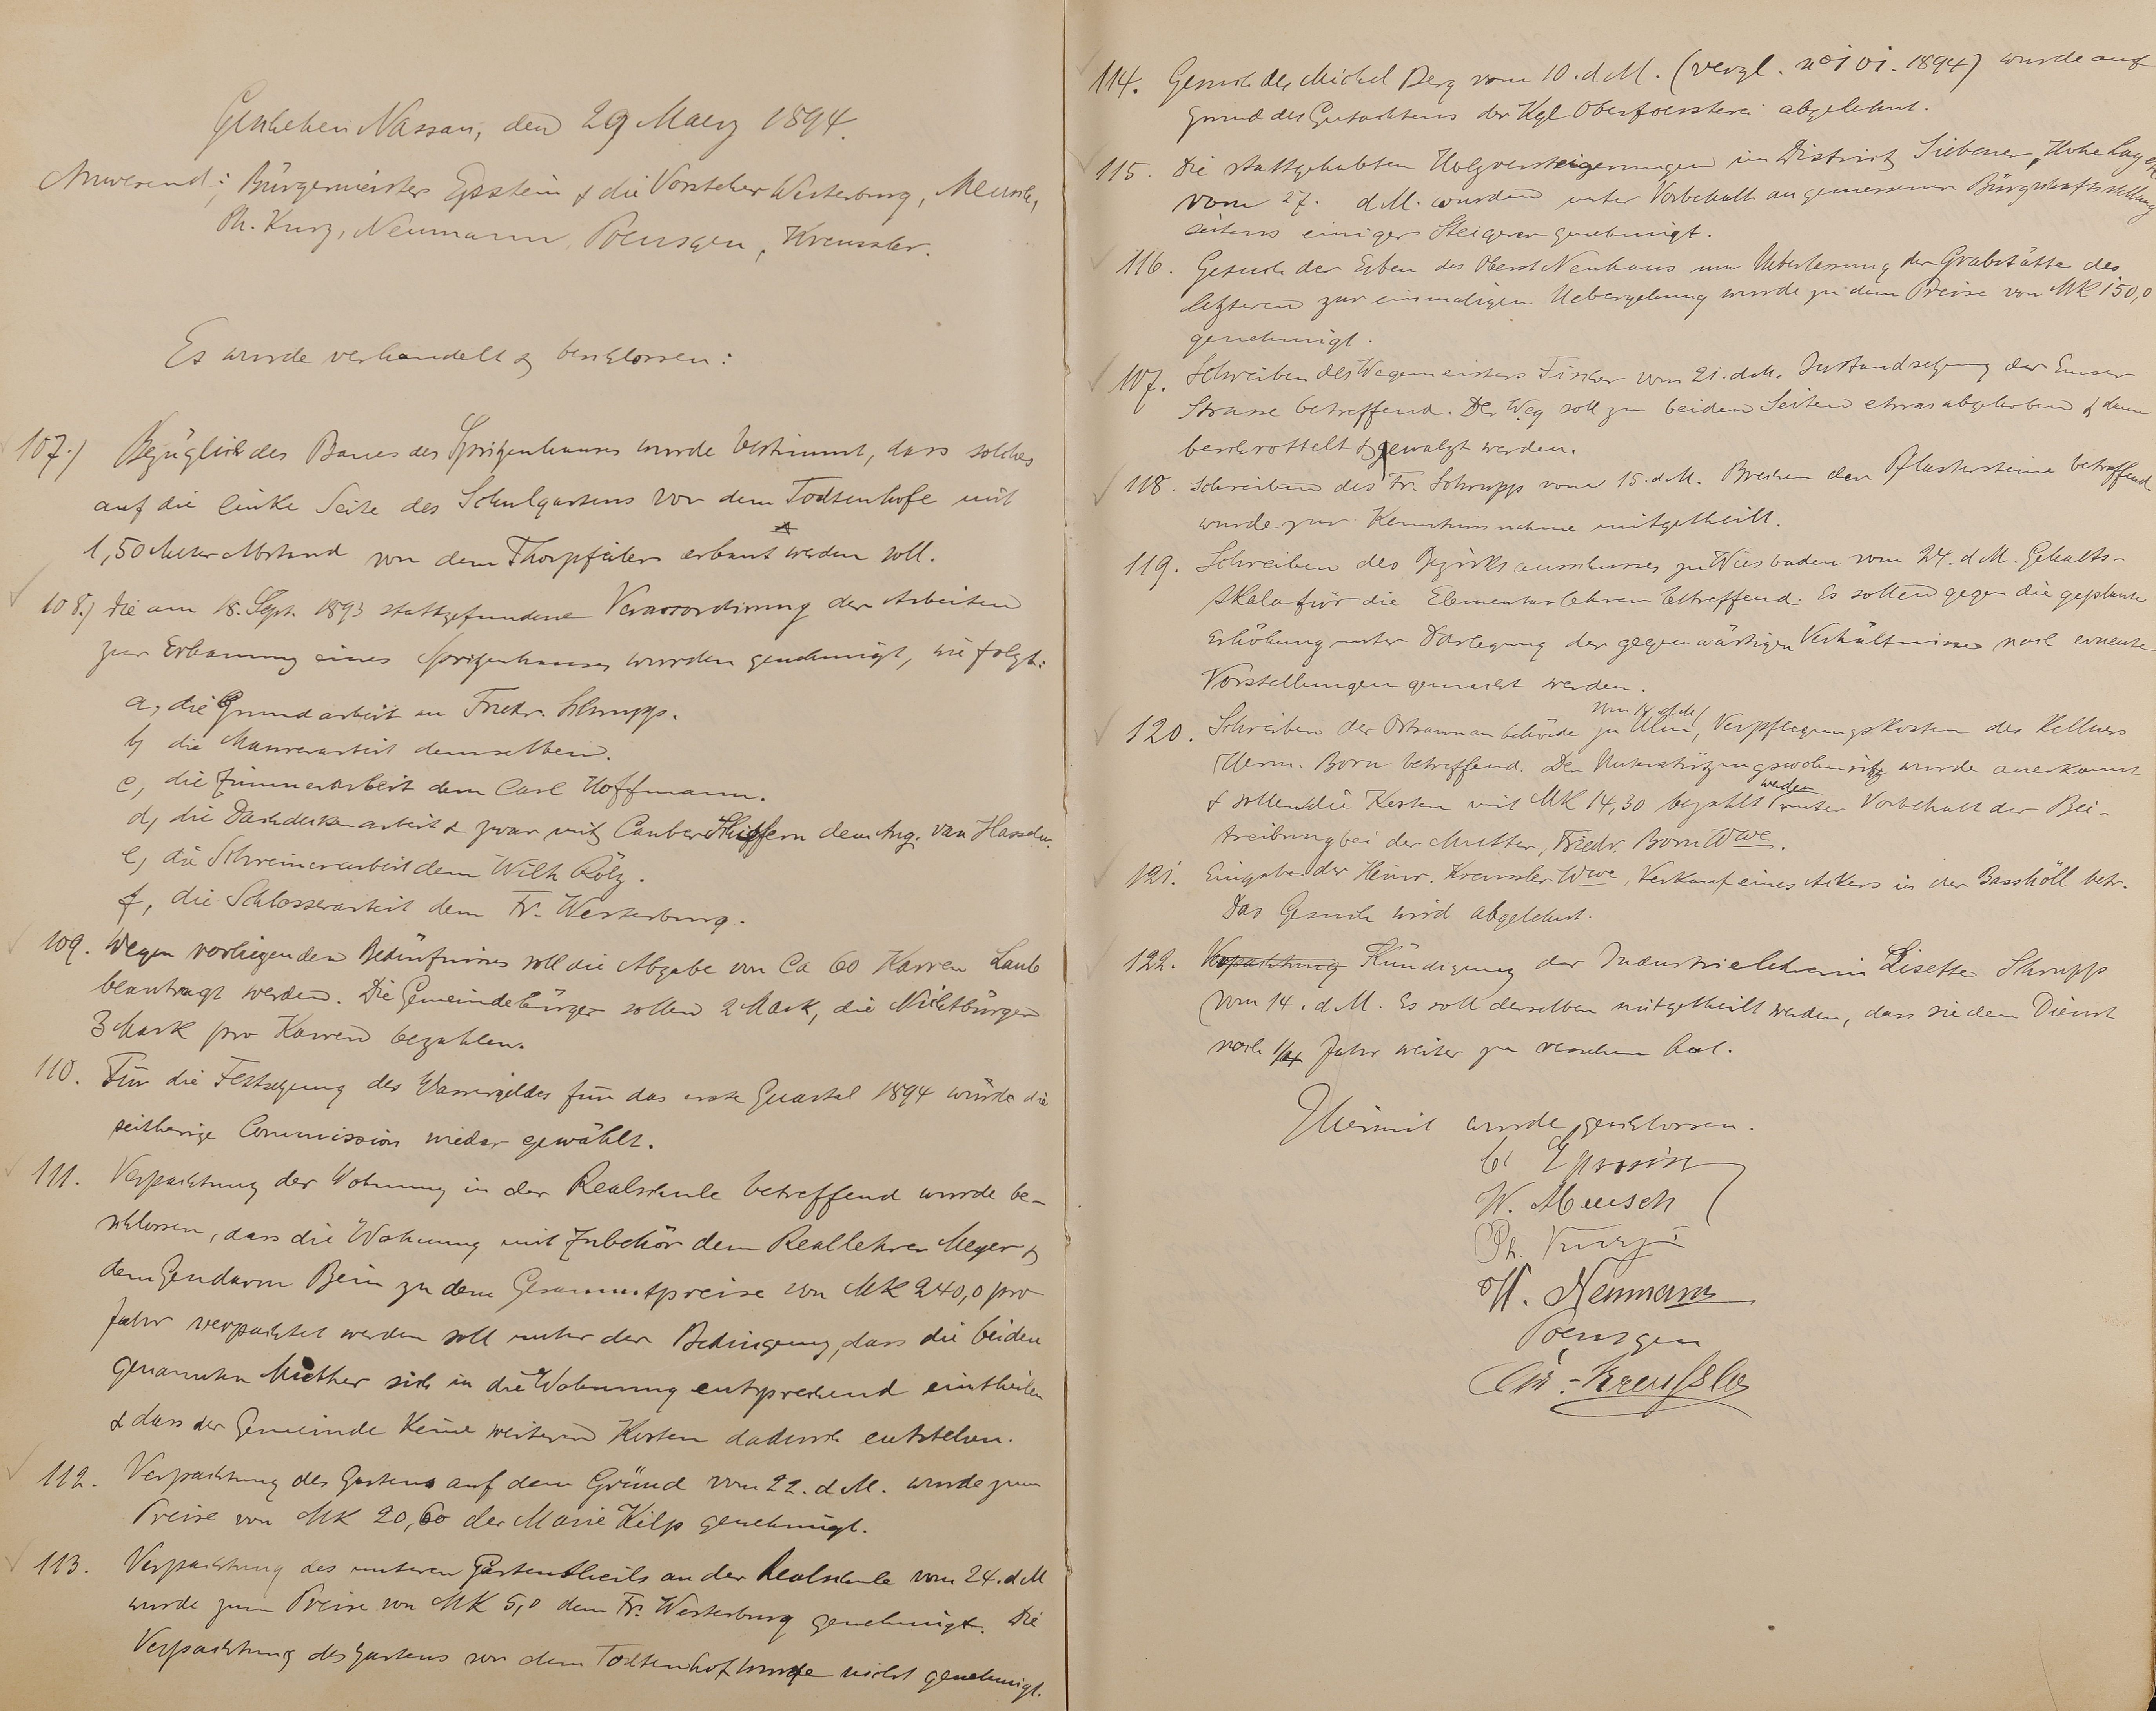 Geschehen Nassau, den 29 Maerz 1894.
Anwesend: Bürgermeister Epstein & die Vorsteher Westerburg, Meusch,
Ph. Kurz, Neumann, Poensgen, Kreussler.
Es wurde verhandelt & beschlossen:
107.) Bezüglich des Baues des Spritzenhauses wurde bestimmt, dass solches
auf die linke Seite des Schulgartens vor dem Todtenhofe mit
1,50 Meter Abstand von dem Thorpfeiler erbaut werden soll.
108.) Die am 18. Sept. 1893 stattgefundene Veraccordirung der Arbeiten
zur Erbauung eines Spritzenhauses wurden genehmigt, wie folgt:
a, die Grundarbeit an Friedr. Schrupp.
b, die Maurerarbeit demselben.
c, die Zimmerarbeit dem Carl Hoffmann.
d, die Dachdeckerarbeit & zwar mit Cauber Schiefern dem Aug. van Hasselu.
e, die Schreinerarbeit dem Wilh Rölz.
f, die Schlosserarbeit dem Fr. Westerburg.
109. Wegen vorliegenden Bedürfnisses soll die Abgabe von Ca 60 Karren Laub
beantragt werden. Die Gemeindebürger sollen 2 Mark, die Nichtbürger
3 Mark pro Karren bezahlen.
110. Für die Festsetzung des Wassergeldes für das erste Quartal 1894 wurde die
seitherige Commission wieder gewählt.
111. Verpachtung der Wohnung in der Realschule betreffend wurde be-
schlossen, dass die Wohnung mit Zubehör dem Reallehrer Meyer &
dem Gendarm Bein zu dem Gesammtpreise von MK 240,0 pro
Jahr verpachtet werden soll unter der Bedingung, dass die beiden
genannten Miether sich in die Wohnung entsprechend eintheilen
& dass der Gemeinde keine weiteren Kosten dadurch entstehen.
112. Verpachtung des Gartens auf dem Gründ vom 22. d M. wurde zum
Preise von MK 20,60 der Marie Kilp genehmigt.
113. Verpachtung des unteren Gartentheils an der Realschule vom 24. d M
wurde zum Preise von MK 5,0 dem Fr. Westerburg genehmigt. Die
Verpachtung des Gartens vor dem Todtenhof wurde nicht genehmigt.
114. Gesuch des Michel Berg vom 10. d M. (vergl. no 101. 1894) wurde auf
Grund des Gutachtens der Kgl Oberfoersterei abgelehnt.
115. Die stattgehabten Holzversteigerungen im District Siebener, Hohe Lay etc
vom 27. d M. wurden unter Vorbehalt angemessener Bürgschaftsstellung
seitens einiger Steigerer genehmigt.
116. Gesuch der Erben des Oberst Neuhaus um Ueberlassung der Grabstätte des
letzteren zur einmaligen Uebergehung wurde zu dem Preise von MK 150,0
genehmigt.
107. Schreiben des Wegemeisters Fischer vom 21. d M. Instandsetzung der Emser
Strasse betreffend. Der Weg soll zu beiden Seiten etwas abgehoben & dann
beschrottelt & gewalzt werden.
118. Schreiben des Fr. Schrupp vom 15. d M. Brechen der Pflastersteine betreffend
wurde zur Kenntnisnahme mitgetheilt.
119. Schreiben des Bezirksausschusses zu Wiesbaden vom 24. d M. Gehalts-
skala für die Elementarlehrer betreffend. Es sollen gegen die geplante
Erhöhung unter Darlegung der gegenwärtigen Verhältnisse noch erneute
Vorstellungen gemacht werden.
120. Schreiben der Ortsarmenbehörde zu Ulm, vom 14. d M. Verpflegungskosten des Kellners
Herm. Born betreffend. Der Unterstützungswohnsitz wurde anerkannt
& sollen die Kosten mit MK 14,30 bezahlt werden unter Vorbehalt der Bei-
treibung bei der Mutter, Friedr. Born Wwe.
121. Eingabe der Heinr. Kreussler Wwe, Verkauf eines Ackers in der Basshöll betr.
Das Gesuch wird abgelehnt.
122. Verpachtung Kündigung der Industrielehrerin Lisette Schrupp
vom 14. d M. Es soll derselben mitgetheilt werden, dass sie den Dienst
noch 1/4 Jahr weiter zu versehen hat.
Hiermit wurde geschlossen.
C. Epstein
W. Meusch
Ph. Kurz
W. Neumann
Poensgen
Chr. Kreussler